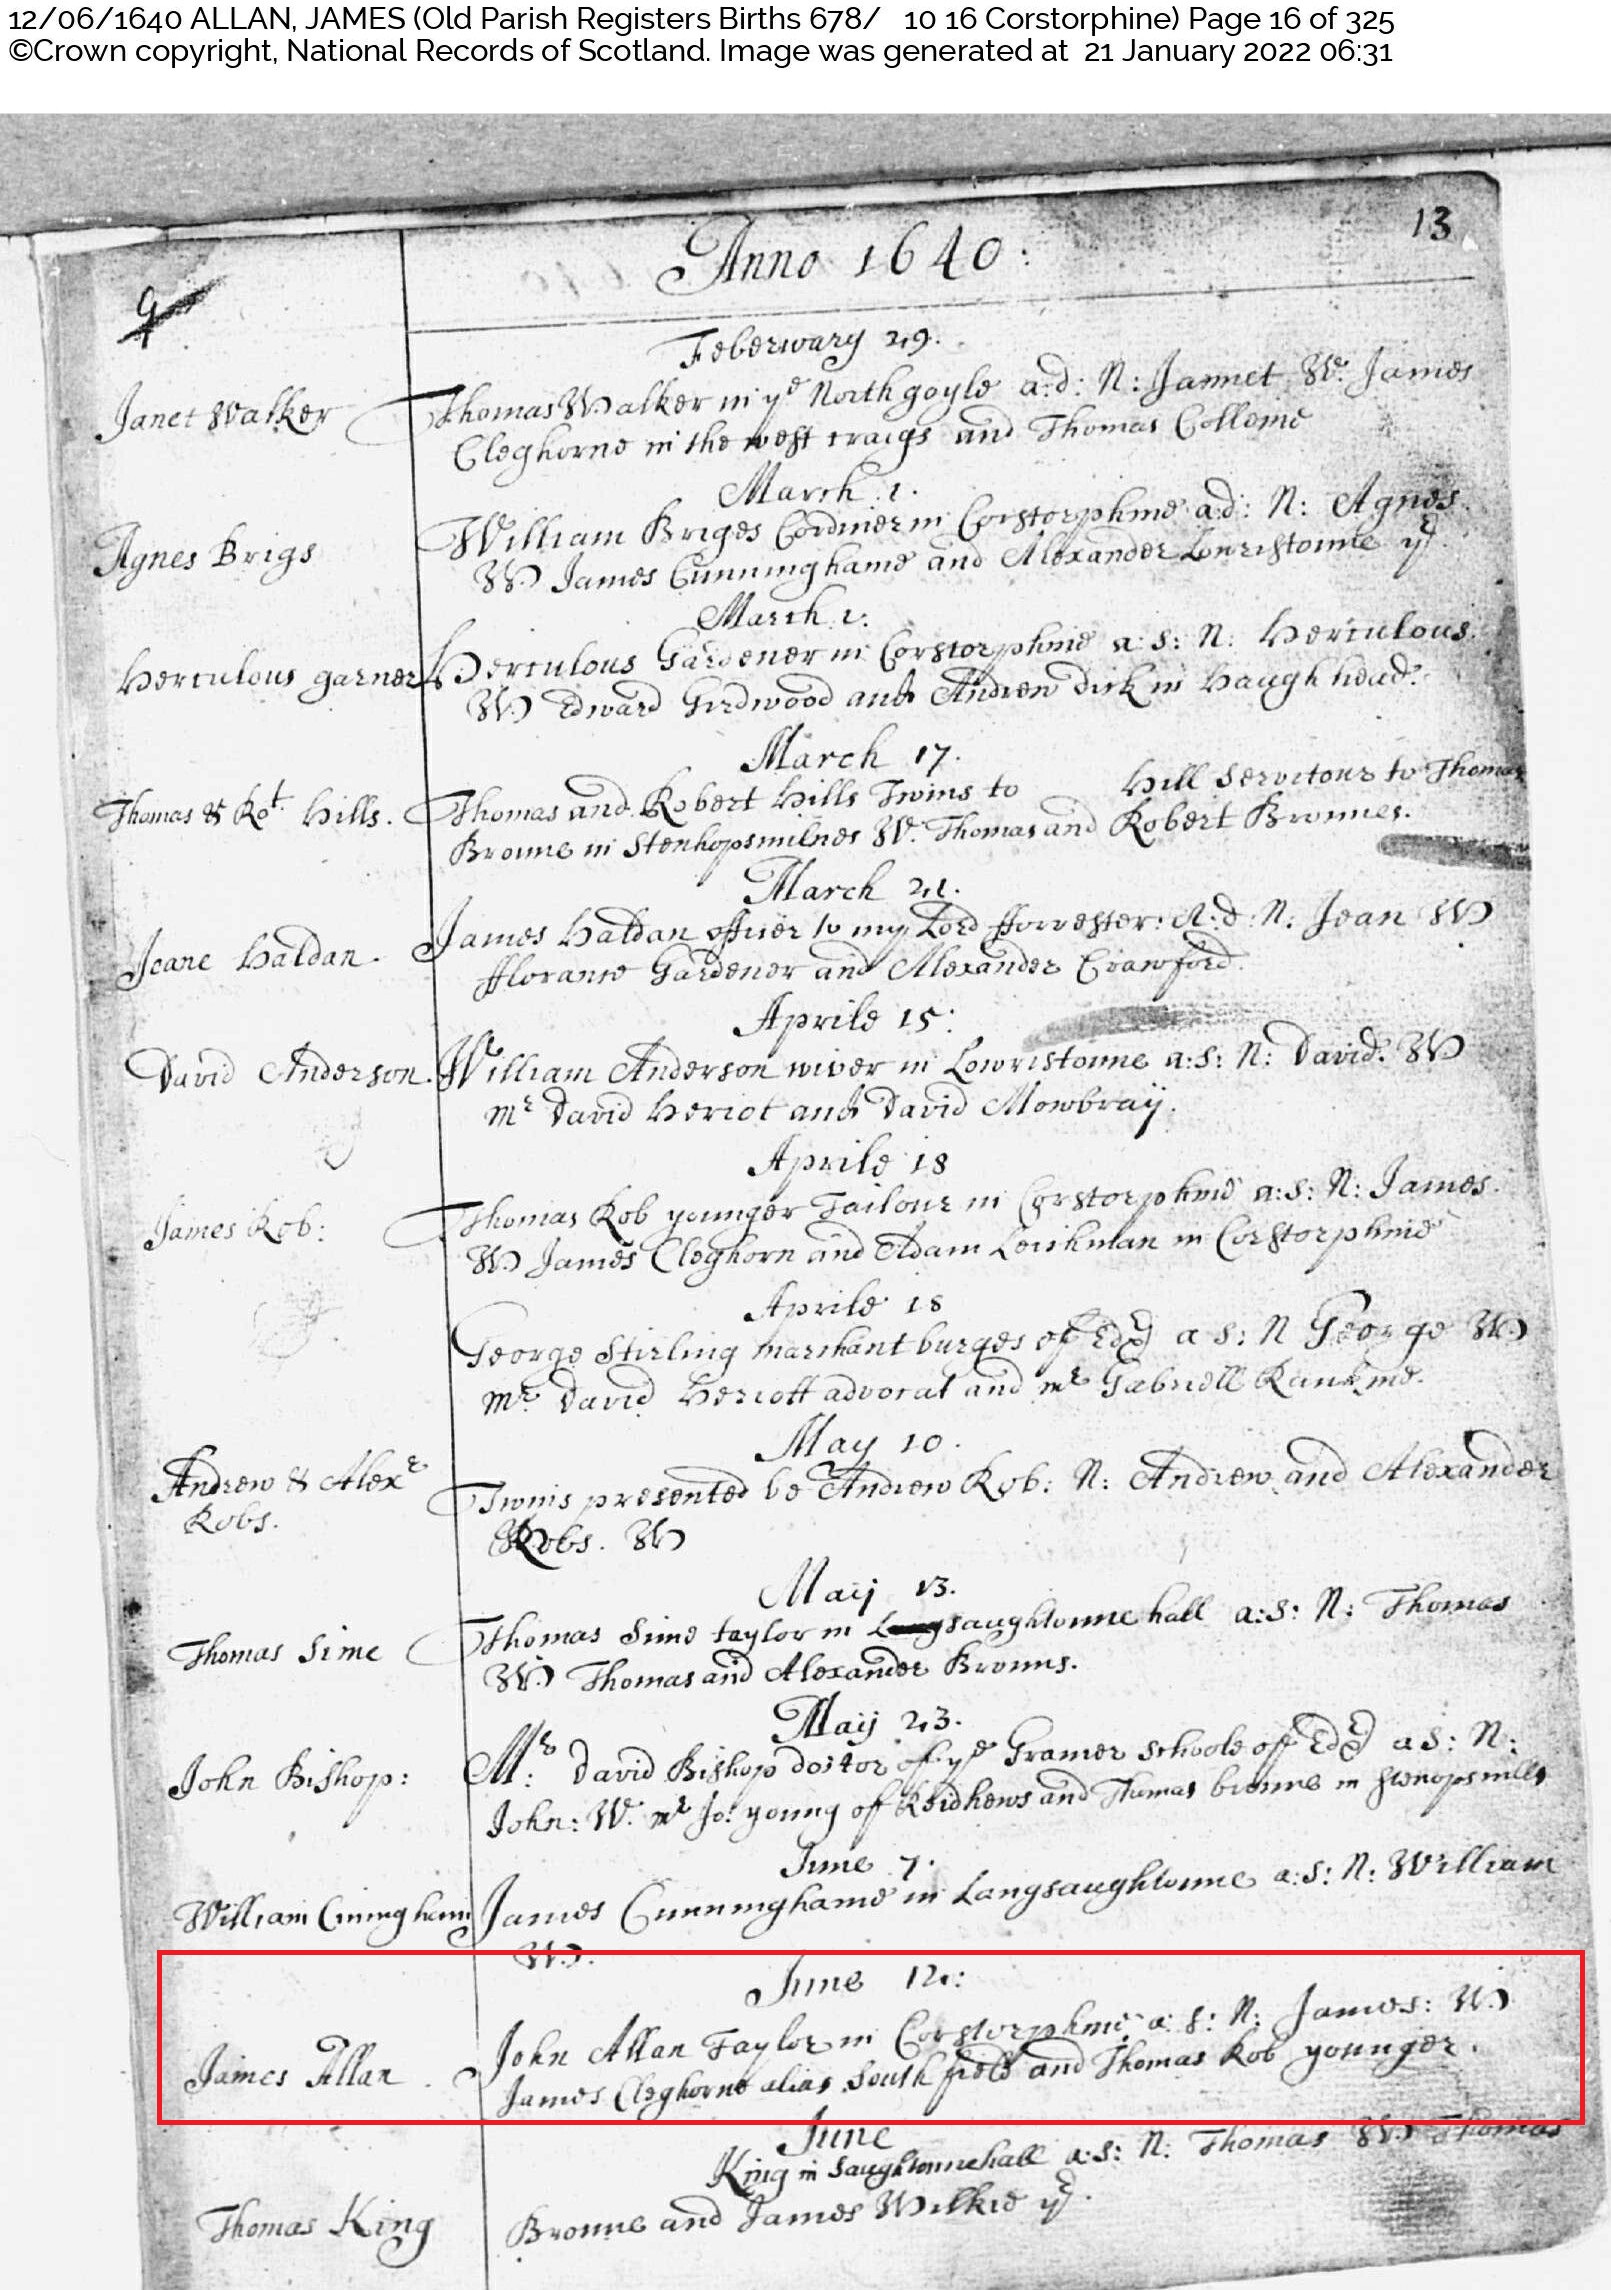 12/06/1640 ALLAN, JAMES (Old Parish Registers Births 678/ 10 16 Corstorphine) Page 16 of 325
©Crown copyright, National Records of Scotland. Image was generated at 21 January 2022 06:31
13
Anno 1640:
9
Feberwary 29.
Janet Walker
Thomas Walker in yᵉ Northgoyle a:d: N: Jannet Wᵉ. James
Cleghorne in the west craigs and Thomas Colleme
March 1.
Agnes Brigs
William Briges Cordiner in Corstorphine a:d: N: Agnes.
W James Cunninghame and Alexander Lowristoune yʳ.
March 1.
Herculous garner
Herculous Gardener in Corstorphine a:s: N: Herculous.
W Edward Girdwood and Andrew dick in Haugh head.
March 17.
Thomas & Roᵗ. Hills.
Thomas and Robert Hills Twins to Hill Servitour to Thomas
Broune in Stenhopsmilnes W. Thomas and Robert Brounes.
March 21.
Jeane Haldan.
James Haldan officer to my Lord fforrester: A:d: N: Jean W
fflorance Gardener and Alexander Crawford.
Aprile 15:
David Anderson.
William Anderson wiver in Lowristoune a:s: N: David. W
Mʳ David Heriot and David Mowbray.
Aprile 18
James Rob:
Thomas Rob younger Tailour in Corstorphine a:s: N: James.
W James Cleghorn and Adam Leishman in Corstorphine
Aprile 18
George Stirling marchant burges of Edʳ a s: N George W
Mʳ David Heriott advocat and mʳ Gabriell Rankine.
May 10.
Andrew & Alexʳ
Robs.
Twins presented be Andrew Rob: N: Andrew and Alexander
Robs. W
Maij 13.
Thomas Sime
Thomas Sime taylor in saughtoune hall a:s: N: Thomas
W Thomas and Alexander Brouns.
Maij 23.
John Bishop:
Mʳ: David Bishop doctor of yᵉ Gramer schoole of Edʳ a s: N:
John: W. mʳ Jo: young of Reidhews and Thomas broune in stenopsmills
June 7.
William Cuningham
James Cunninghame in Langsaughtoune a:s: N: William
W.
June 12:
James Allan.
John Allan Taylor in Corstorphine a: s: N: James: W
James Cleghorne alias Southfield and Thomas Rob younger.
June
King in Saughtounehall a:s: N: Thomas W Thomas
Thomas King
Broune and James Wilkie yʳ.